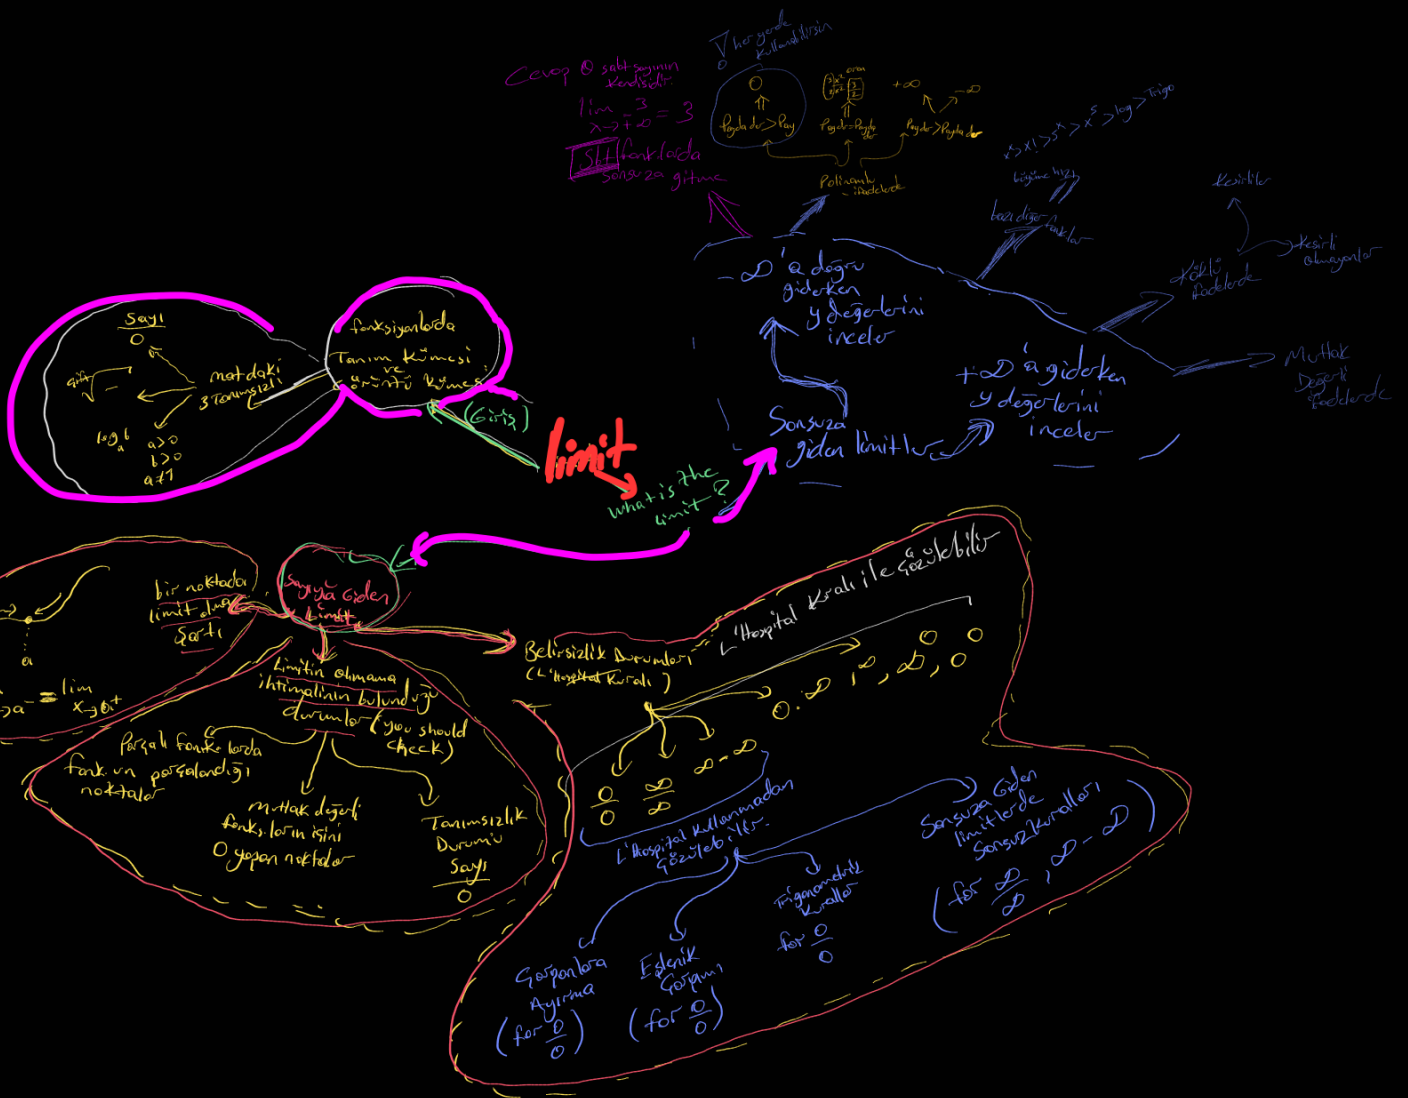 her yerde
kullanabilirsin
Cevap sabit sayının
kendisidir.
lim 3 = 3
x→+∞
Sbt fonk.larda
sonsuza gitme
0
Payda der > Pay
3x²
2x²
3
2
Pay der = Payda
der
+∞
-∞
Pay der > Payda der
Polinomlu
ifadelerde
xˣ > x! > 5ˣ > x⁵ > log > Trigo
büyüme hızı
bazı diğer
fonklar
Kesirliler
Kesirli
olmayanlar
Köklü
ifadelerde
Mutlak
Değerli
ifadelerde
-∞'a doğru
giderken
y değerlerini
inceler
+∞'a giderken
y değerlerini
inceler
Sonsuza
giden limitler
Sayı
0
çift√-
matdaki
3 Tanımsızlı
log b
a
a>0
b>0
a≠1
fonksiyonlarda
Tanım Kümesi
ve
Görüntü Kümesi
(Giriş)
limit
What is the
limit?
Sayıya Giden
Limit
bir noktada
limit olma
Şartı
a
→a⁻ = lim
x→a⁺
Limitin olmama
ihtimalinin bulunduğu
durumlar (you should
check)
Parçalı fonk.larda
fonk.un parçalandığı
noktalar
mutlak değerli
fonks.ların içini
0 yapan noktalar
Tanımsızlık
Durumu
Sayı
0
Belirsizlik Durumları
(L'Hospital Kuralı)
L'Hospital Kralı ile Çözülebilir
0/0
∞/∞
∞-∞
0.∞, , ∞⁰, 0⁰
L'Hospital Kullanmadan
Çözülebilir.
Çarpanlara
Ayırma
(for 0/0)
Eşlenik
Çarpımı
(for 0/0)
Trigonometrik
Kurallar
for 0/0
Sonsuza Giden
limitlerde
Sonsuz Kuralları
(for ∞/∞, ∞-∞)